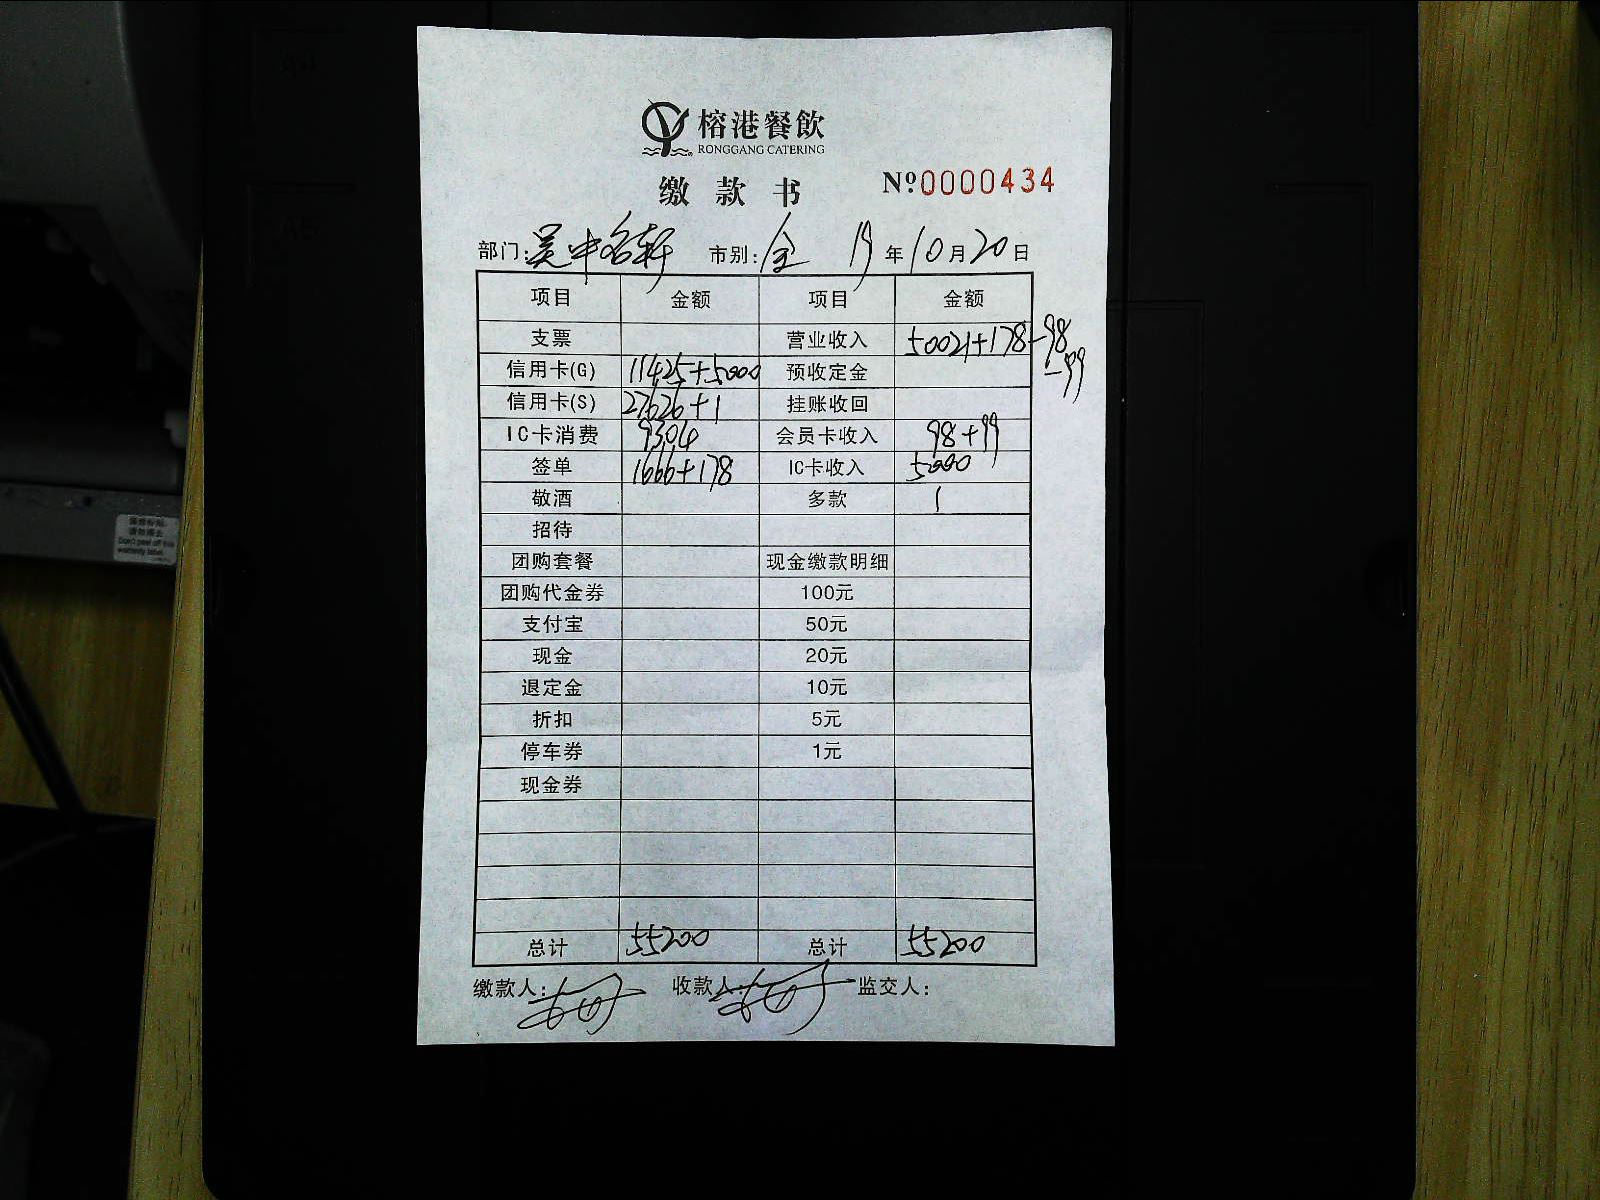 榕港餐飲
RONGGANG CATERING
缴款书 Nº0000434
部门:吴中名轩 市别:全 19年10月20日
项目 金额 项目 金额
支票 营业收入 50021+178-98-99
信用卡(G) 11425+5000 预收定金
信用卡(S) 27626+1 挂账收回
IC卡消费 9304 会员卡收入 98+99
签单 1666+178 IC卡收入 5000
敬酒 多款 1
招待
团购套餐 现金缴款明细
团购代金券 100元
支付宝 50元
现金 20元
退定金 10元
折扣 5元
停车券 1元
现金券
总计 55200 总计 55200
缴款人: 收款人: 监交人:
Don't peel off this
warranty label.